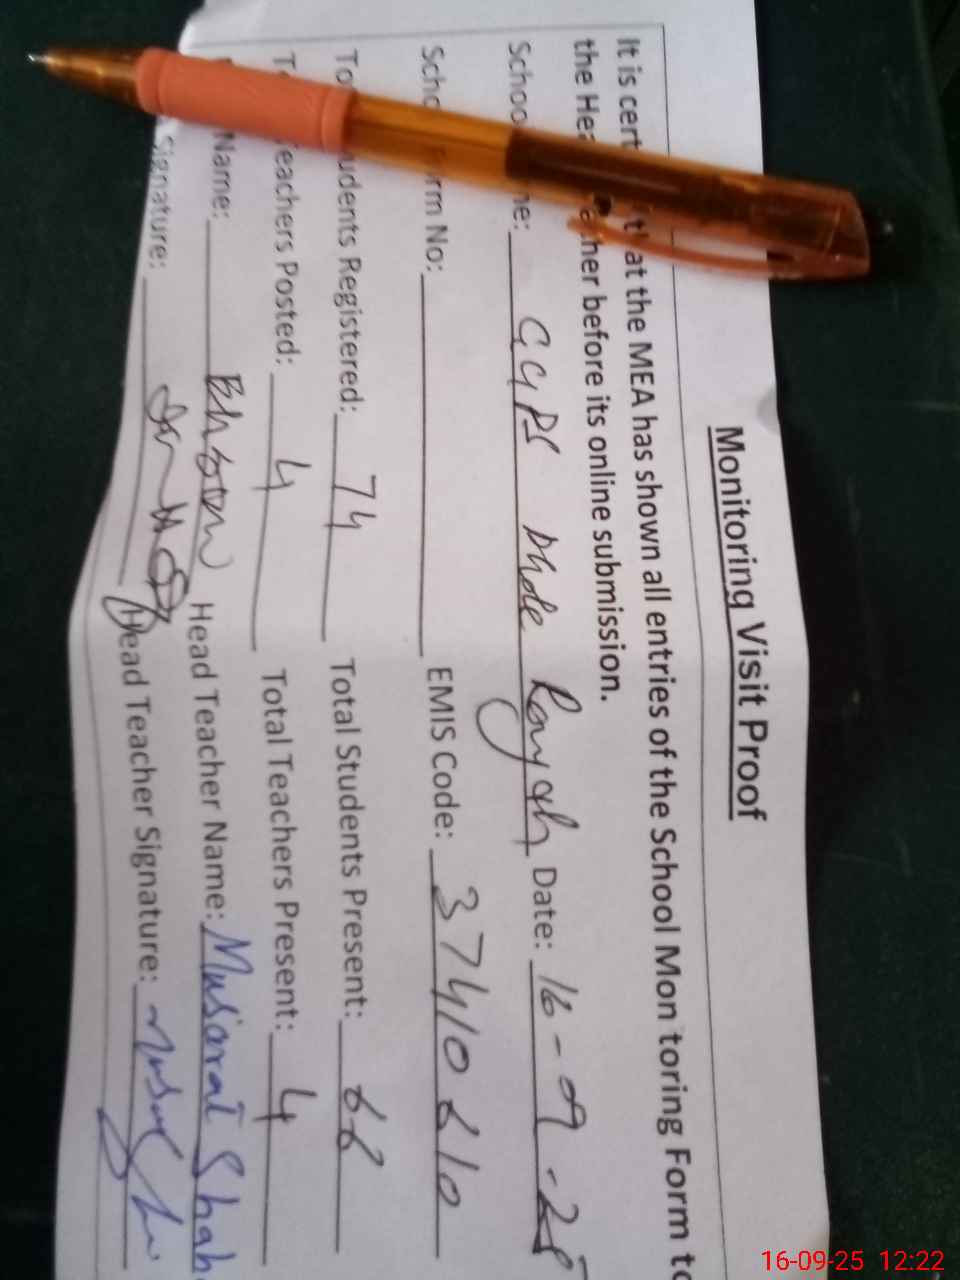 Monitoring Visit Proof
It is cert that the MEA has shown all entries of the School Mon toring Form to
the Hea cher before its online submission.
Schoo me: GGPS Dhoke Date: 16-09-25
Scho orm No: EMIS Code: 37410610
To udents Registered: 74 Total Students Present: 66
To eachers Posted: 4 Total Teachers Present: 4
Name: Head Teacher Name: Musarrat Shah
Signature: Head Teacher Signature:
16-09-25 12:22